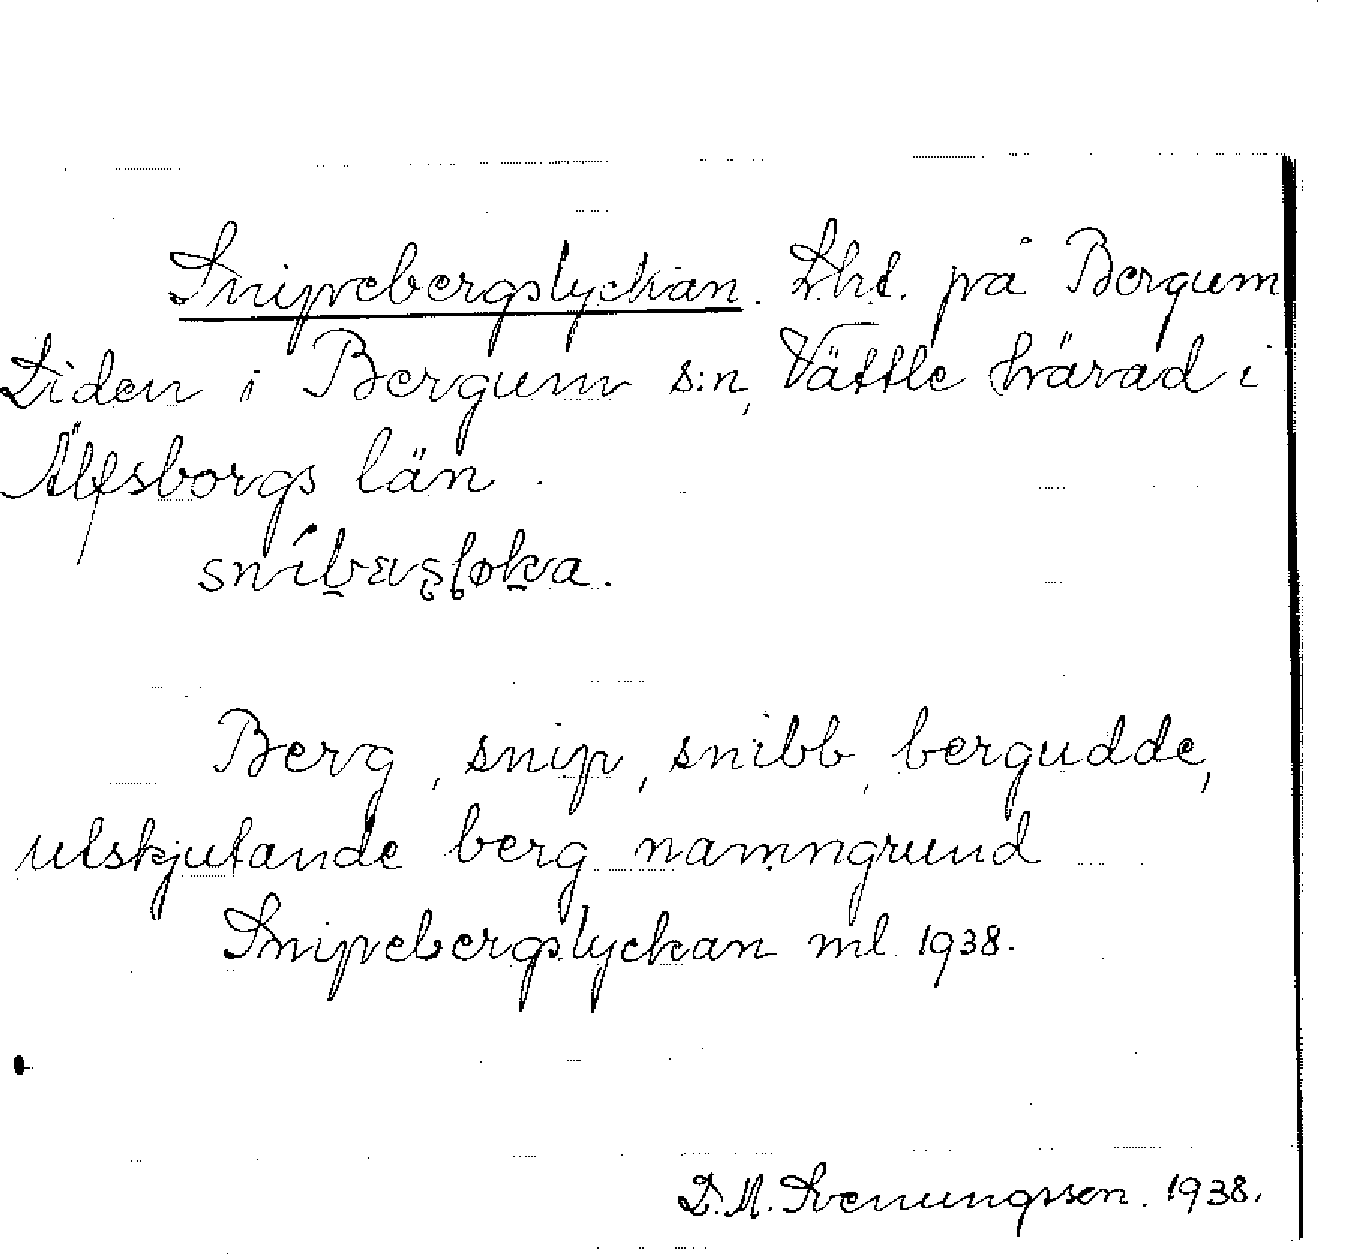 Snipebergslyckan. Lht. på Bergum
Liden i Bergum s:n, Vättle härad i
Älfsborgs län.
Berg, snip, snibb, bergudde,
utskjutande berg namngrund
Snipebergslyckan ml. 1938.
D. M. Svenungsson. 1938.